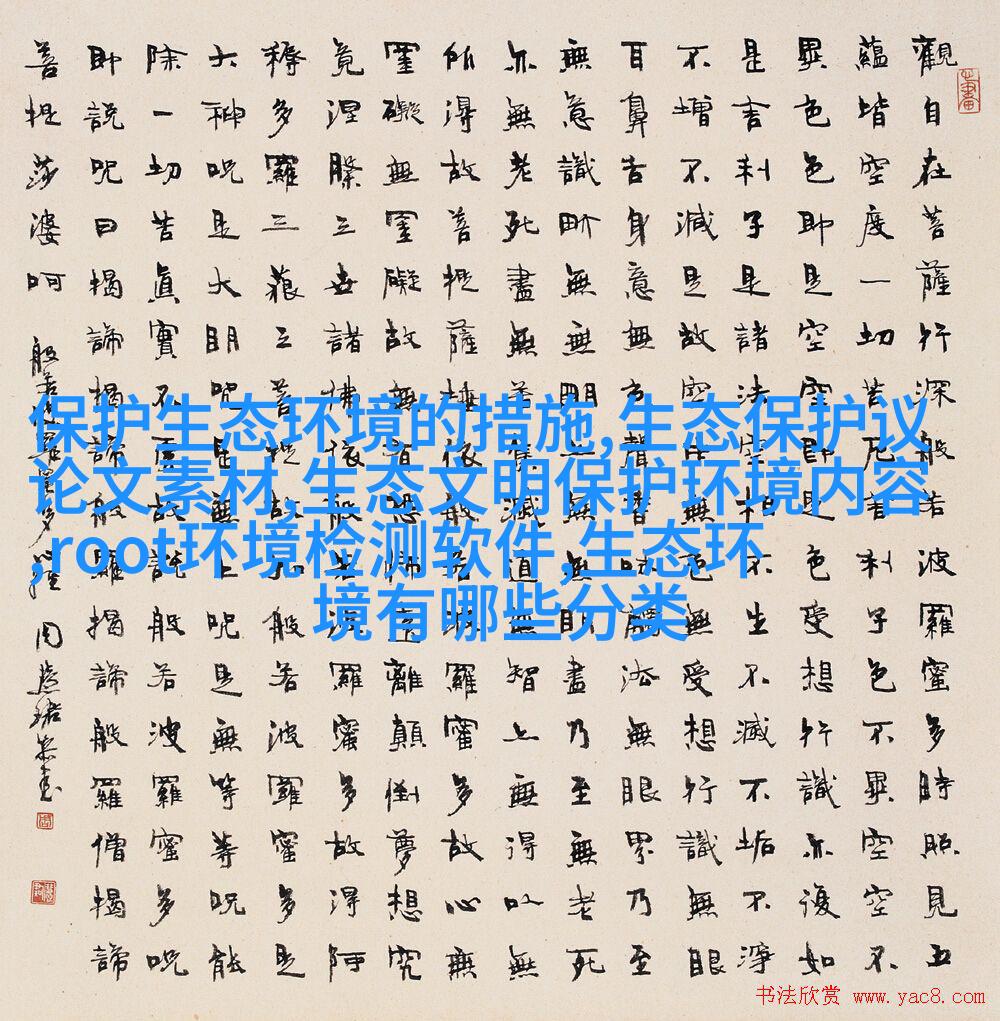 觀自在菩薩行深般若波羅蜜多時照見五
蘊皆空度一切苦厄舍利子色不異空空不
異色色即是空空即是色受想行識亦復如
是舍利子是諸法空相不生不滅不垢不淨
不增不減是故空中無色無受想行識無眼
耳鼻舌身意無色聲香味觸法無眼界乃至
無意識界無無明亦無無明盡乃至無老死
亦無老死盡無苦集滅道無智亦無得以無
所得故菩提薩埵依般若波羅蜜多故心無
罣礙無罣礙故無有恐怖遠離顛倒夢想究
竟涅槃三世諸佛依般若波羅蜜多故得阿
耨多羅三藐三菩提故知般若波羅蜜多是
大神咒是大明咒是無上咒是無等等咒能
除一切苦真實不虛故說般若波羅蜜多咒
即說咒曰揭諦揭諦般羅揭諦般羅僧揭諦
菩提莎婆呵 般若波羅蜜多心經 周慧珺恭書
保护生态环境的措施,生态保护议
论文素材,生态文明保护环境内容
,root环境检测软件,生态环
境有哪些分类
书法欣赏 www.yac8.com